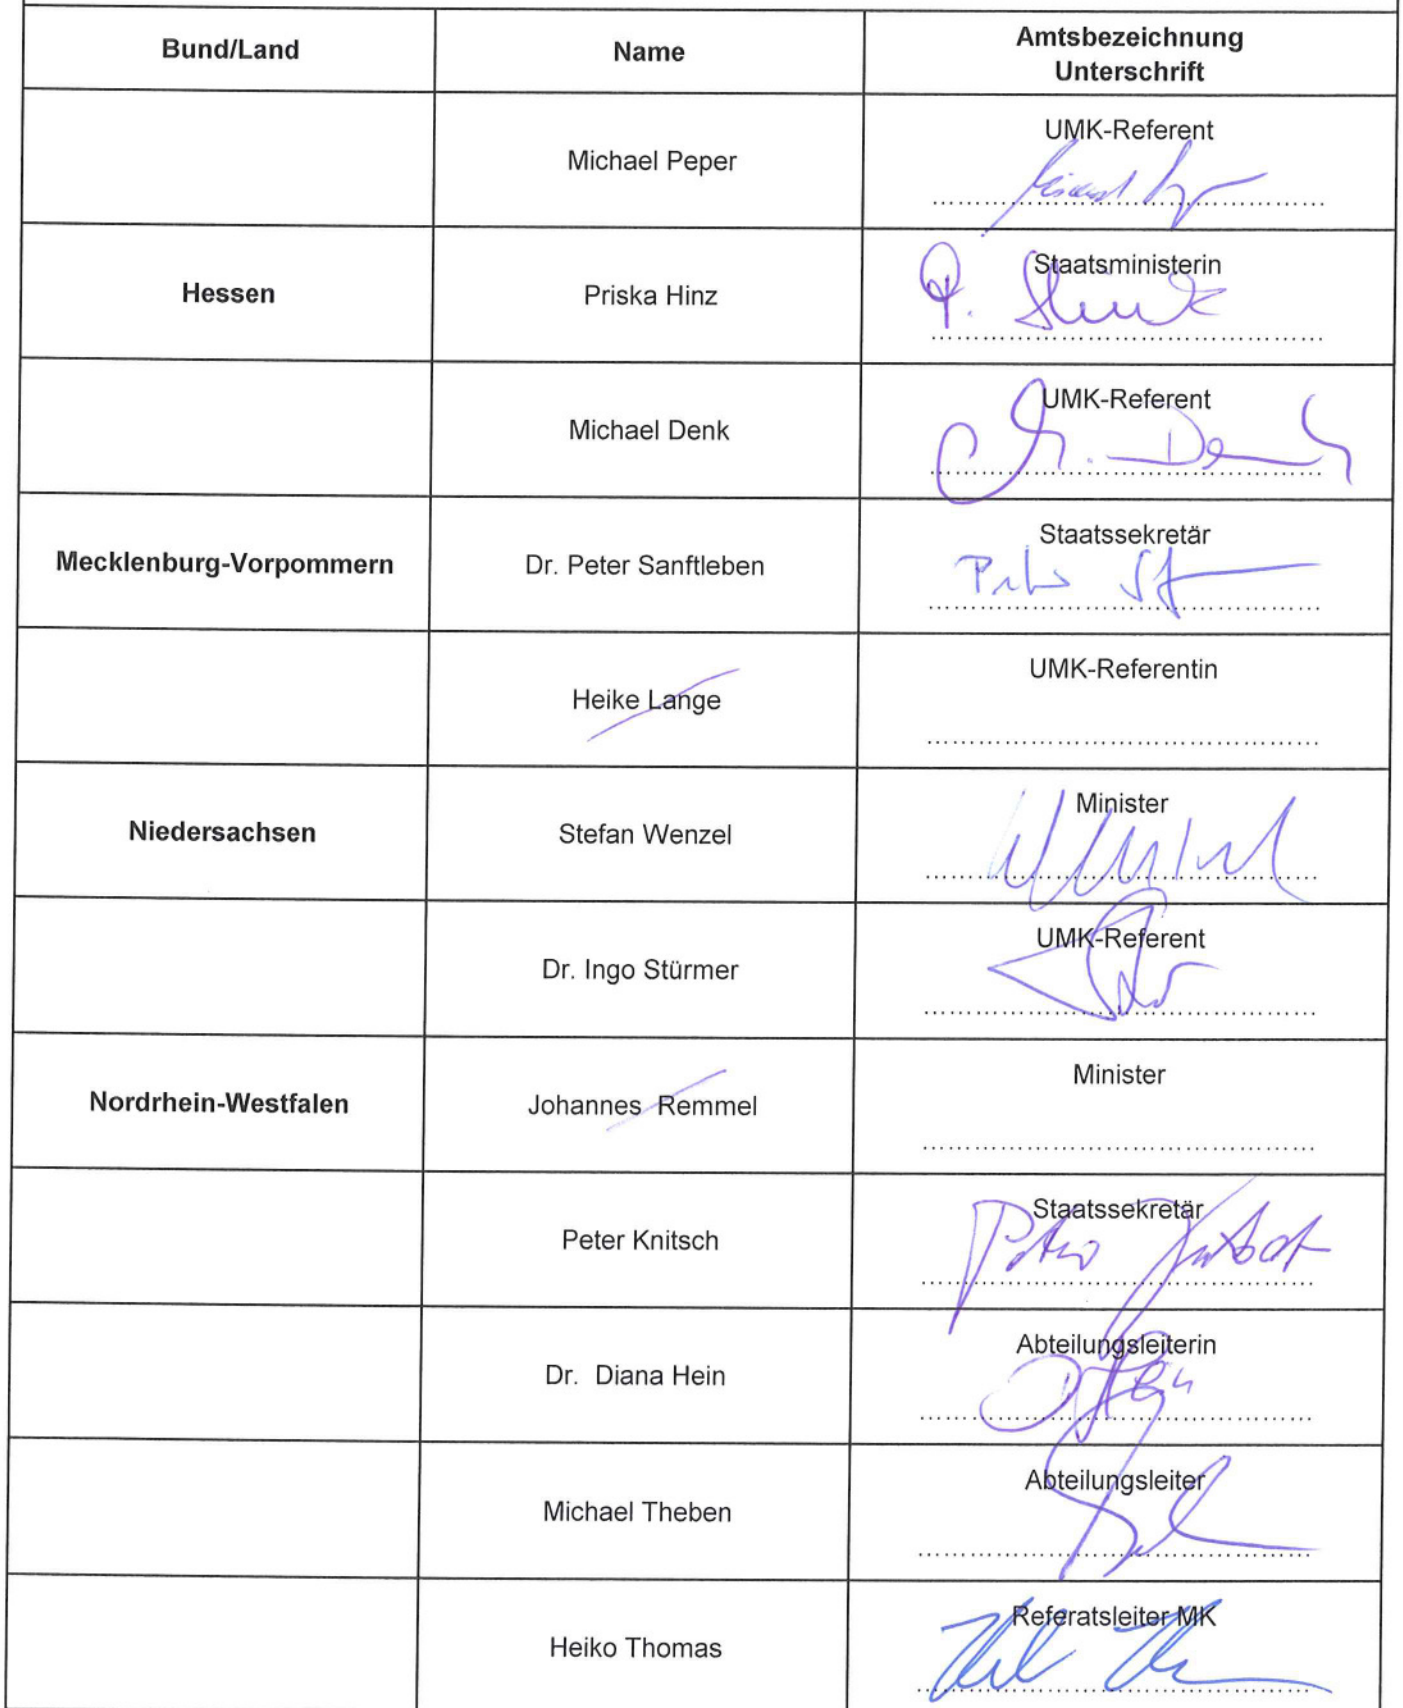 Bund/Land Name Amtsbezeichnung
Unterschrift
Michael Peper UMK-Referent
Hessen Priska Hinz Staatsministerin
P. Hinz
Michael Denk UMK-Referent
M. Denk
Mecklenburg-Vorpommern Dr. Peter Sanftleben Staatssekretär
Heike Lange UMK-Referentin
Niedersachsen Stefan Wenzel Minister
Dr. Ingo Stürmer UMK-Referent
Nordrhein-Westfalen Johannes Remmel Minister
Peter Knitsch Staatssekretär
Peter Knitsch
Dr. Diana Hein Abteilungsleiterin
Michael Theben Abteilungsleiter
Heiko Thomas Referatsleiter MK